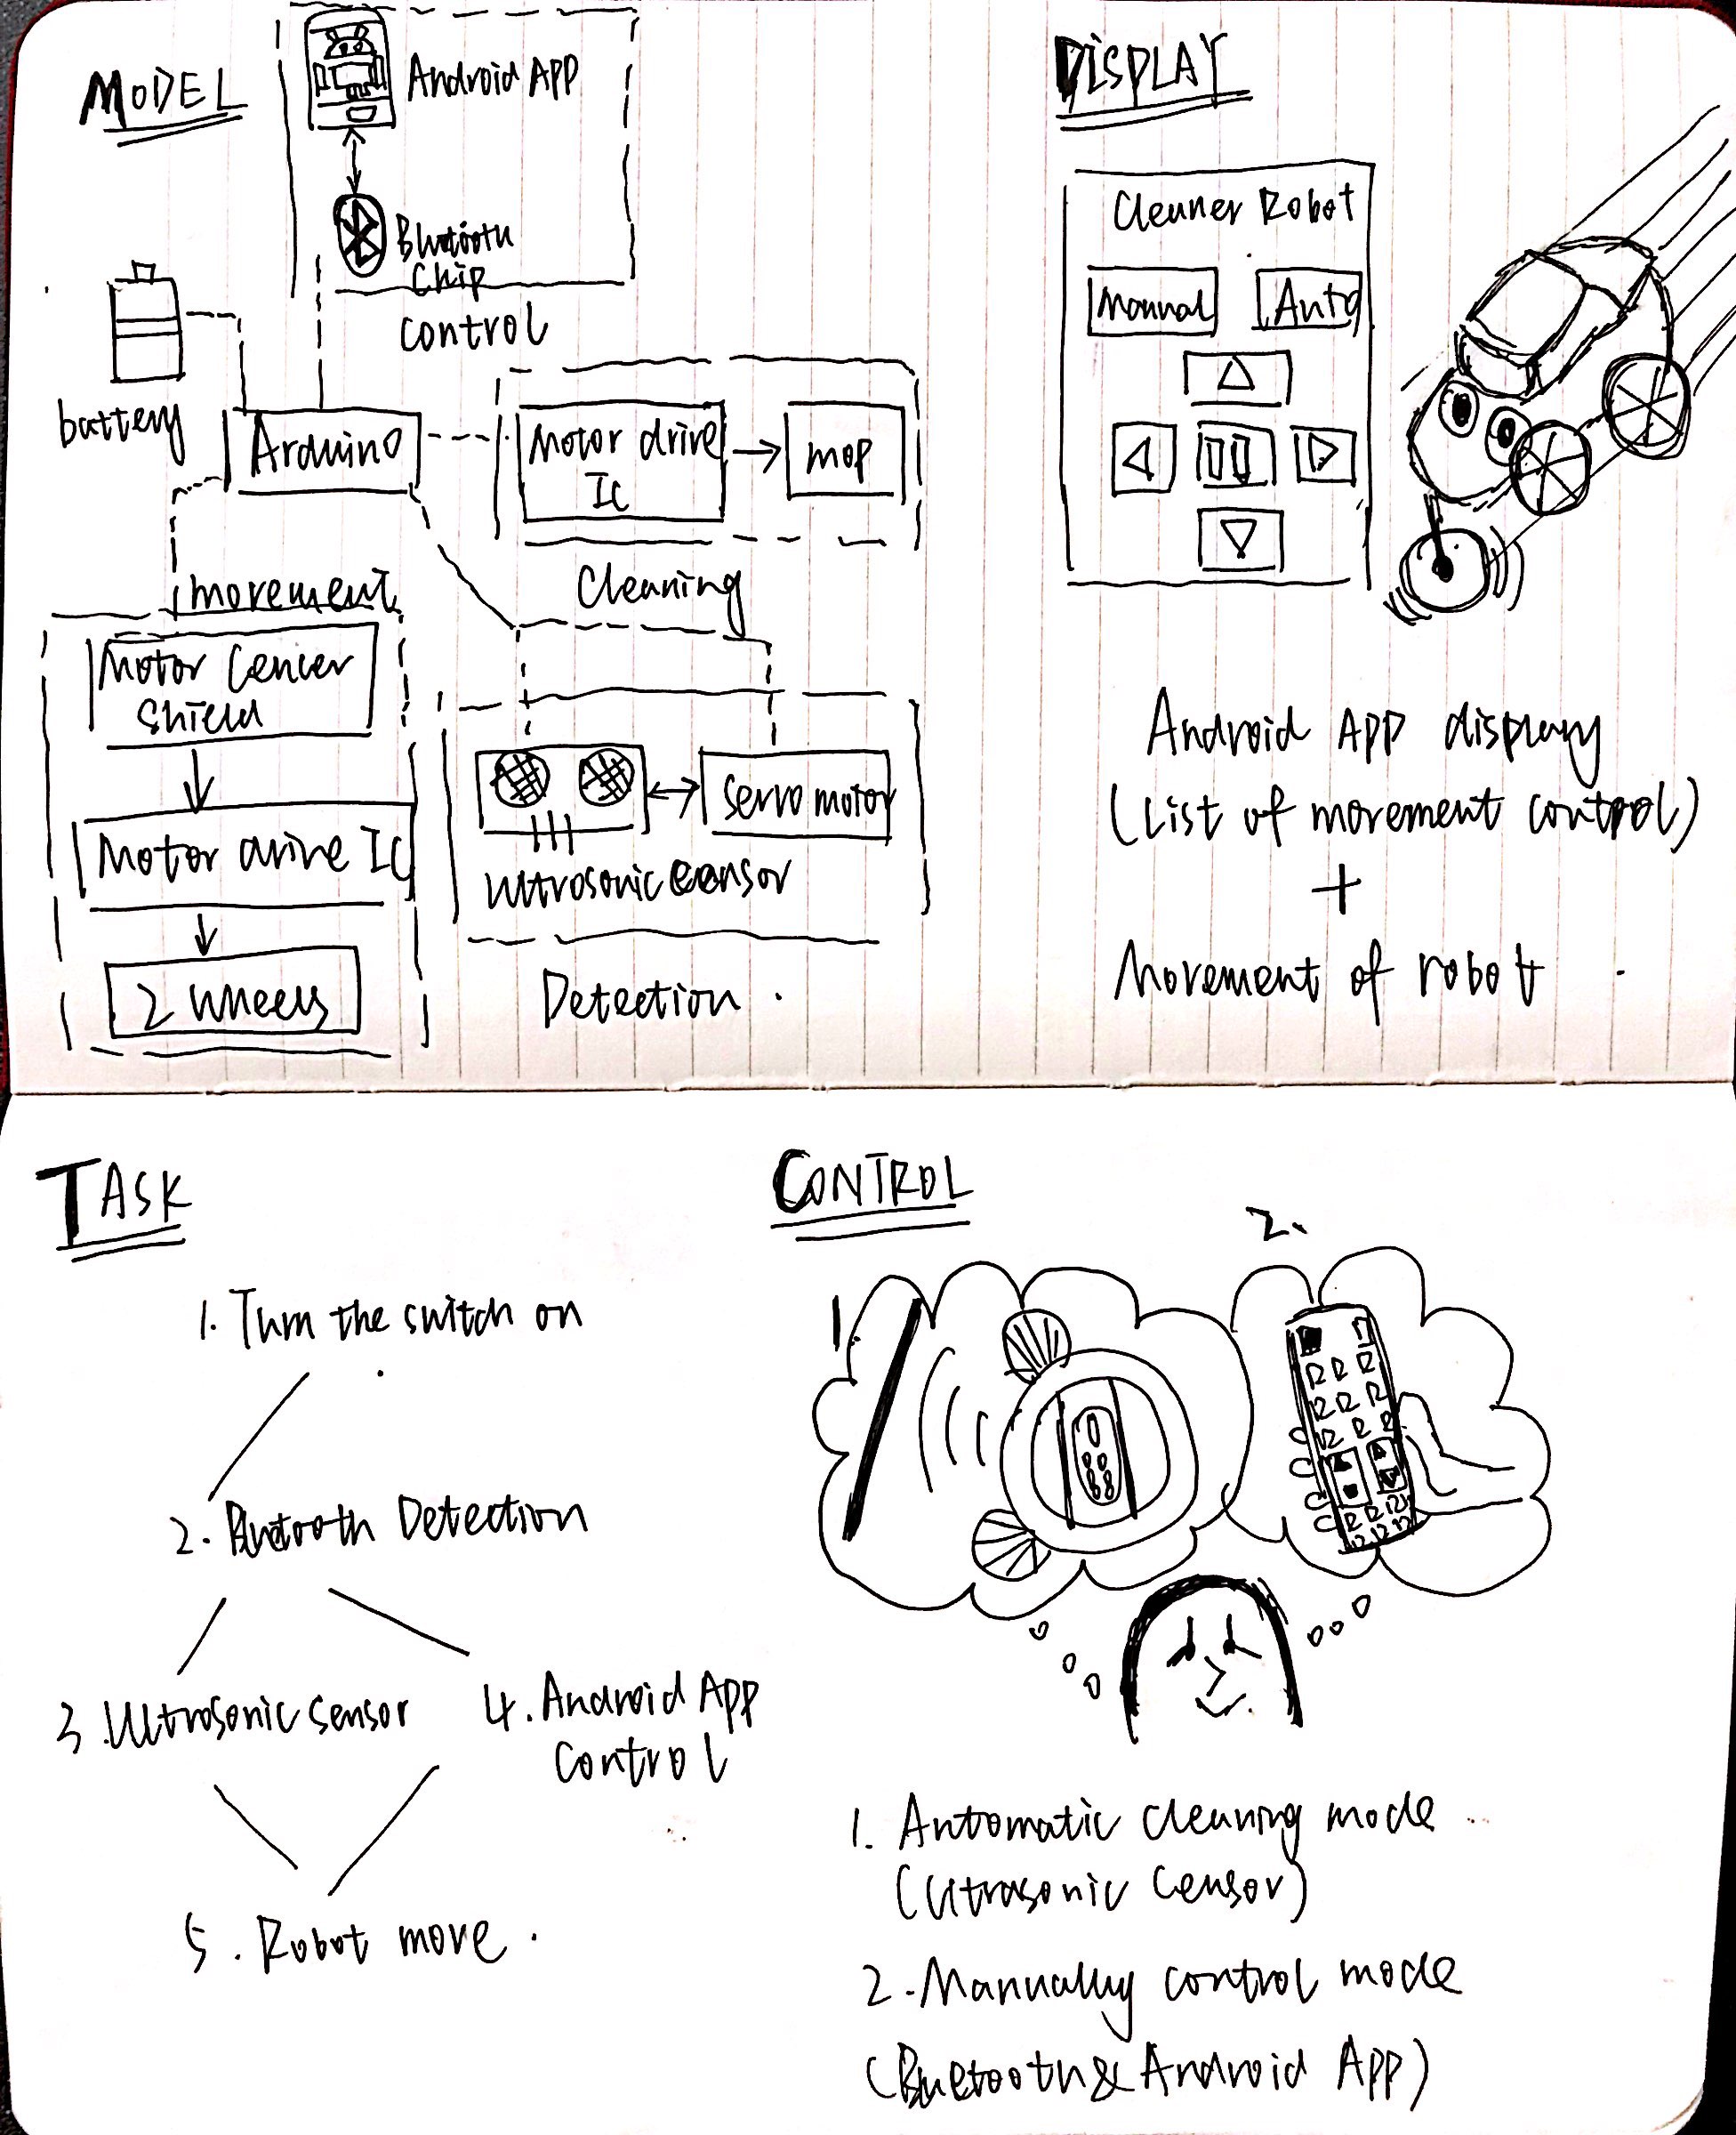 MODEL
Android APP
Bluetooth
Chip
control
battery
Arduino
Motor drive
IC
mop
Cleaning
movement
Motor Cencer
Shield
Motor drive IC
2 wheels
servo motor
ultrosonic censor
Detection.
DISPLAY
Cleaner Robot
Manual
Auto
Android APP display
(List of movement control)
+
Movement of robot
TASK
1. Turn the switch on
2. Bluetooth Detection
3. Ultrosonic sensor
4. Android App
control
5. Robot move.
CONTROL
1.
2.
1. Automatic cleaning mode
(Ultrasonic Censor)
2. Manually control mode
(Bluetooth & Android App)